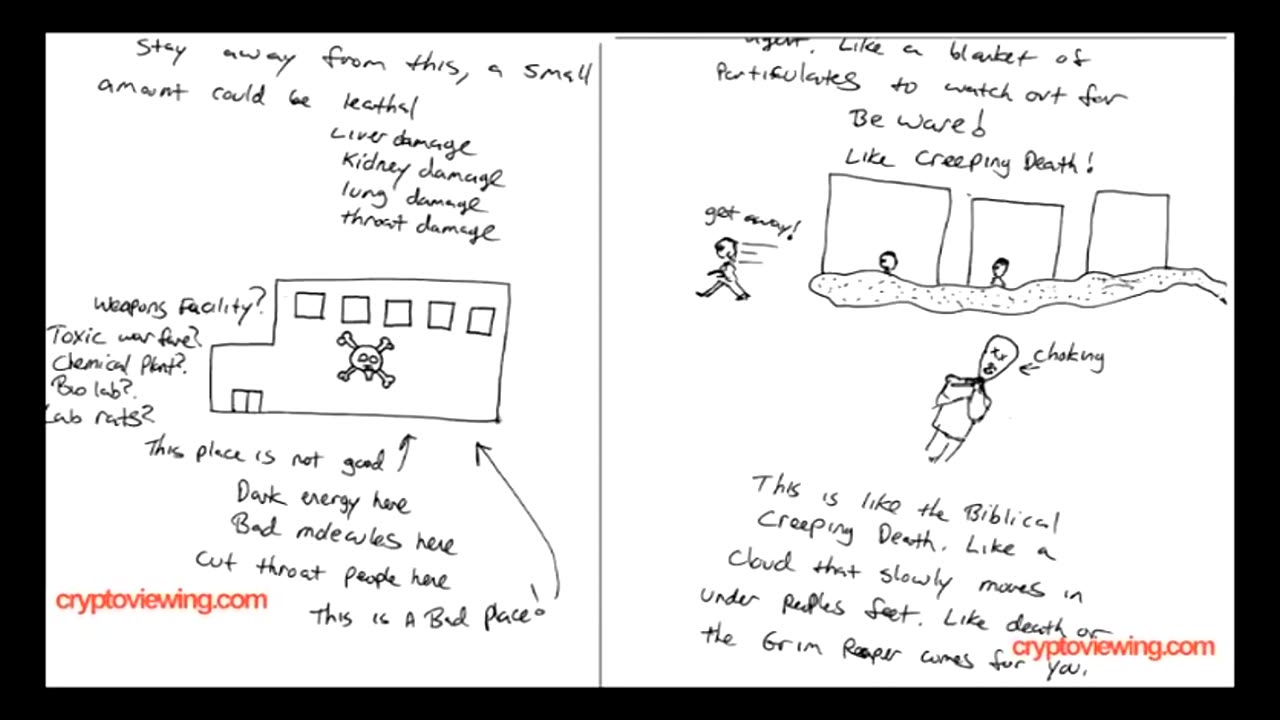 Stay away from this, a small
amount could be leathal
Liver damage
Kidney damage
lung damage
throat damage
Weapons Facility?
Toxic warfare?
Chemical Plant?
Bio lab?
Lab rats?
This place is not good
Dark energy here
Bad molecules here
cut throat people here
This is A Bad place!
cryptoviewing.com
agent. Like a blanket of
Partifulates to watch out for
Be ware!
Like Creeping Death!
get away!
choking
This is like the Biblical
Creeping Death. Like a
cloud that slowly moves in
under peoples feet. Like death or
the Grim Reaper comes for you.
cryptoviewing.com